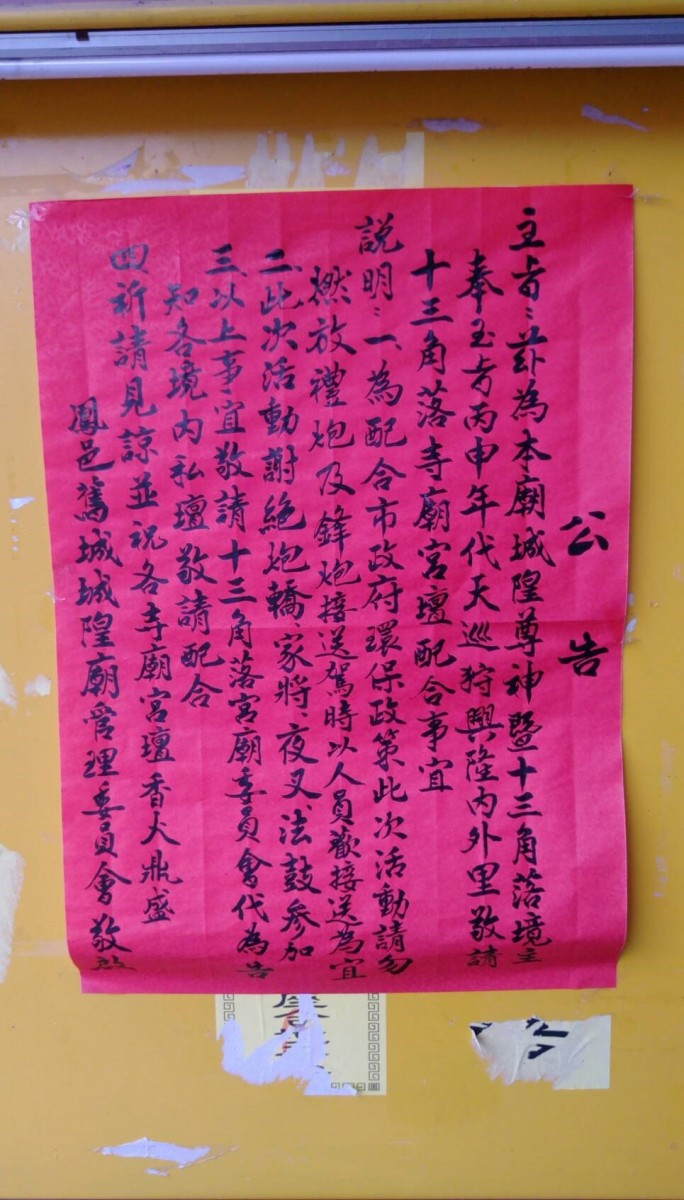 公告
主旨：茲為本廟城隍尊神暨十三角落境主
奉玉旨丙申年代天巡狩興隆內外里敬請
十三角落寺廟宮壇配合事宜
說明：一、為配合市政府環保政策此次活動請勿
燃放禮炮及鋒炮接送駕時以人員歡接送為宜
二、此次活動謝絕炮轎、家將、夜叉、法鼓參加
三、以上事宜敬請十三角落宮廟委員會代為告
知各境內私壇敬請配合
四、祈請見諒並祝各寺廟宮壇香火鼎盛
鳳邑舊城城隍廟管理委員會敬啟